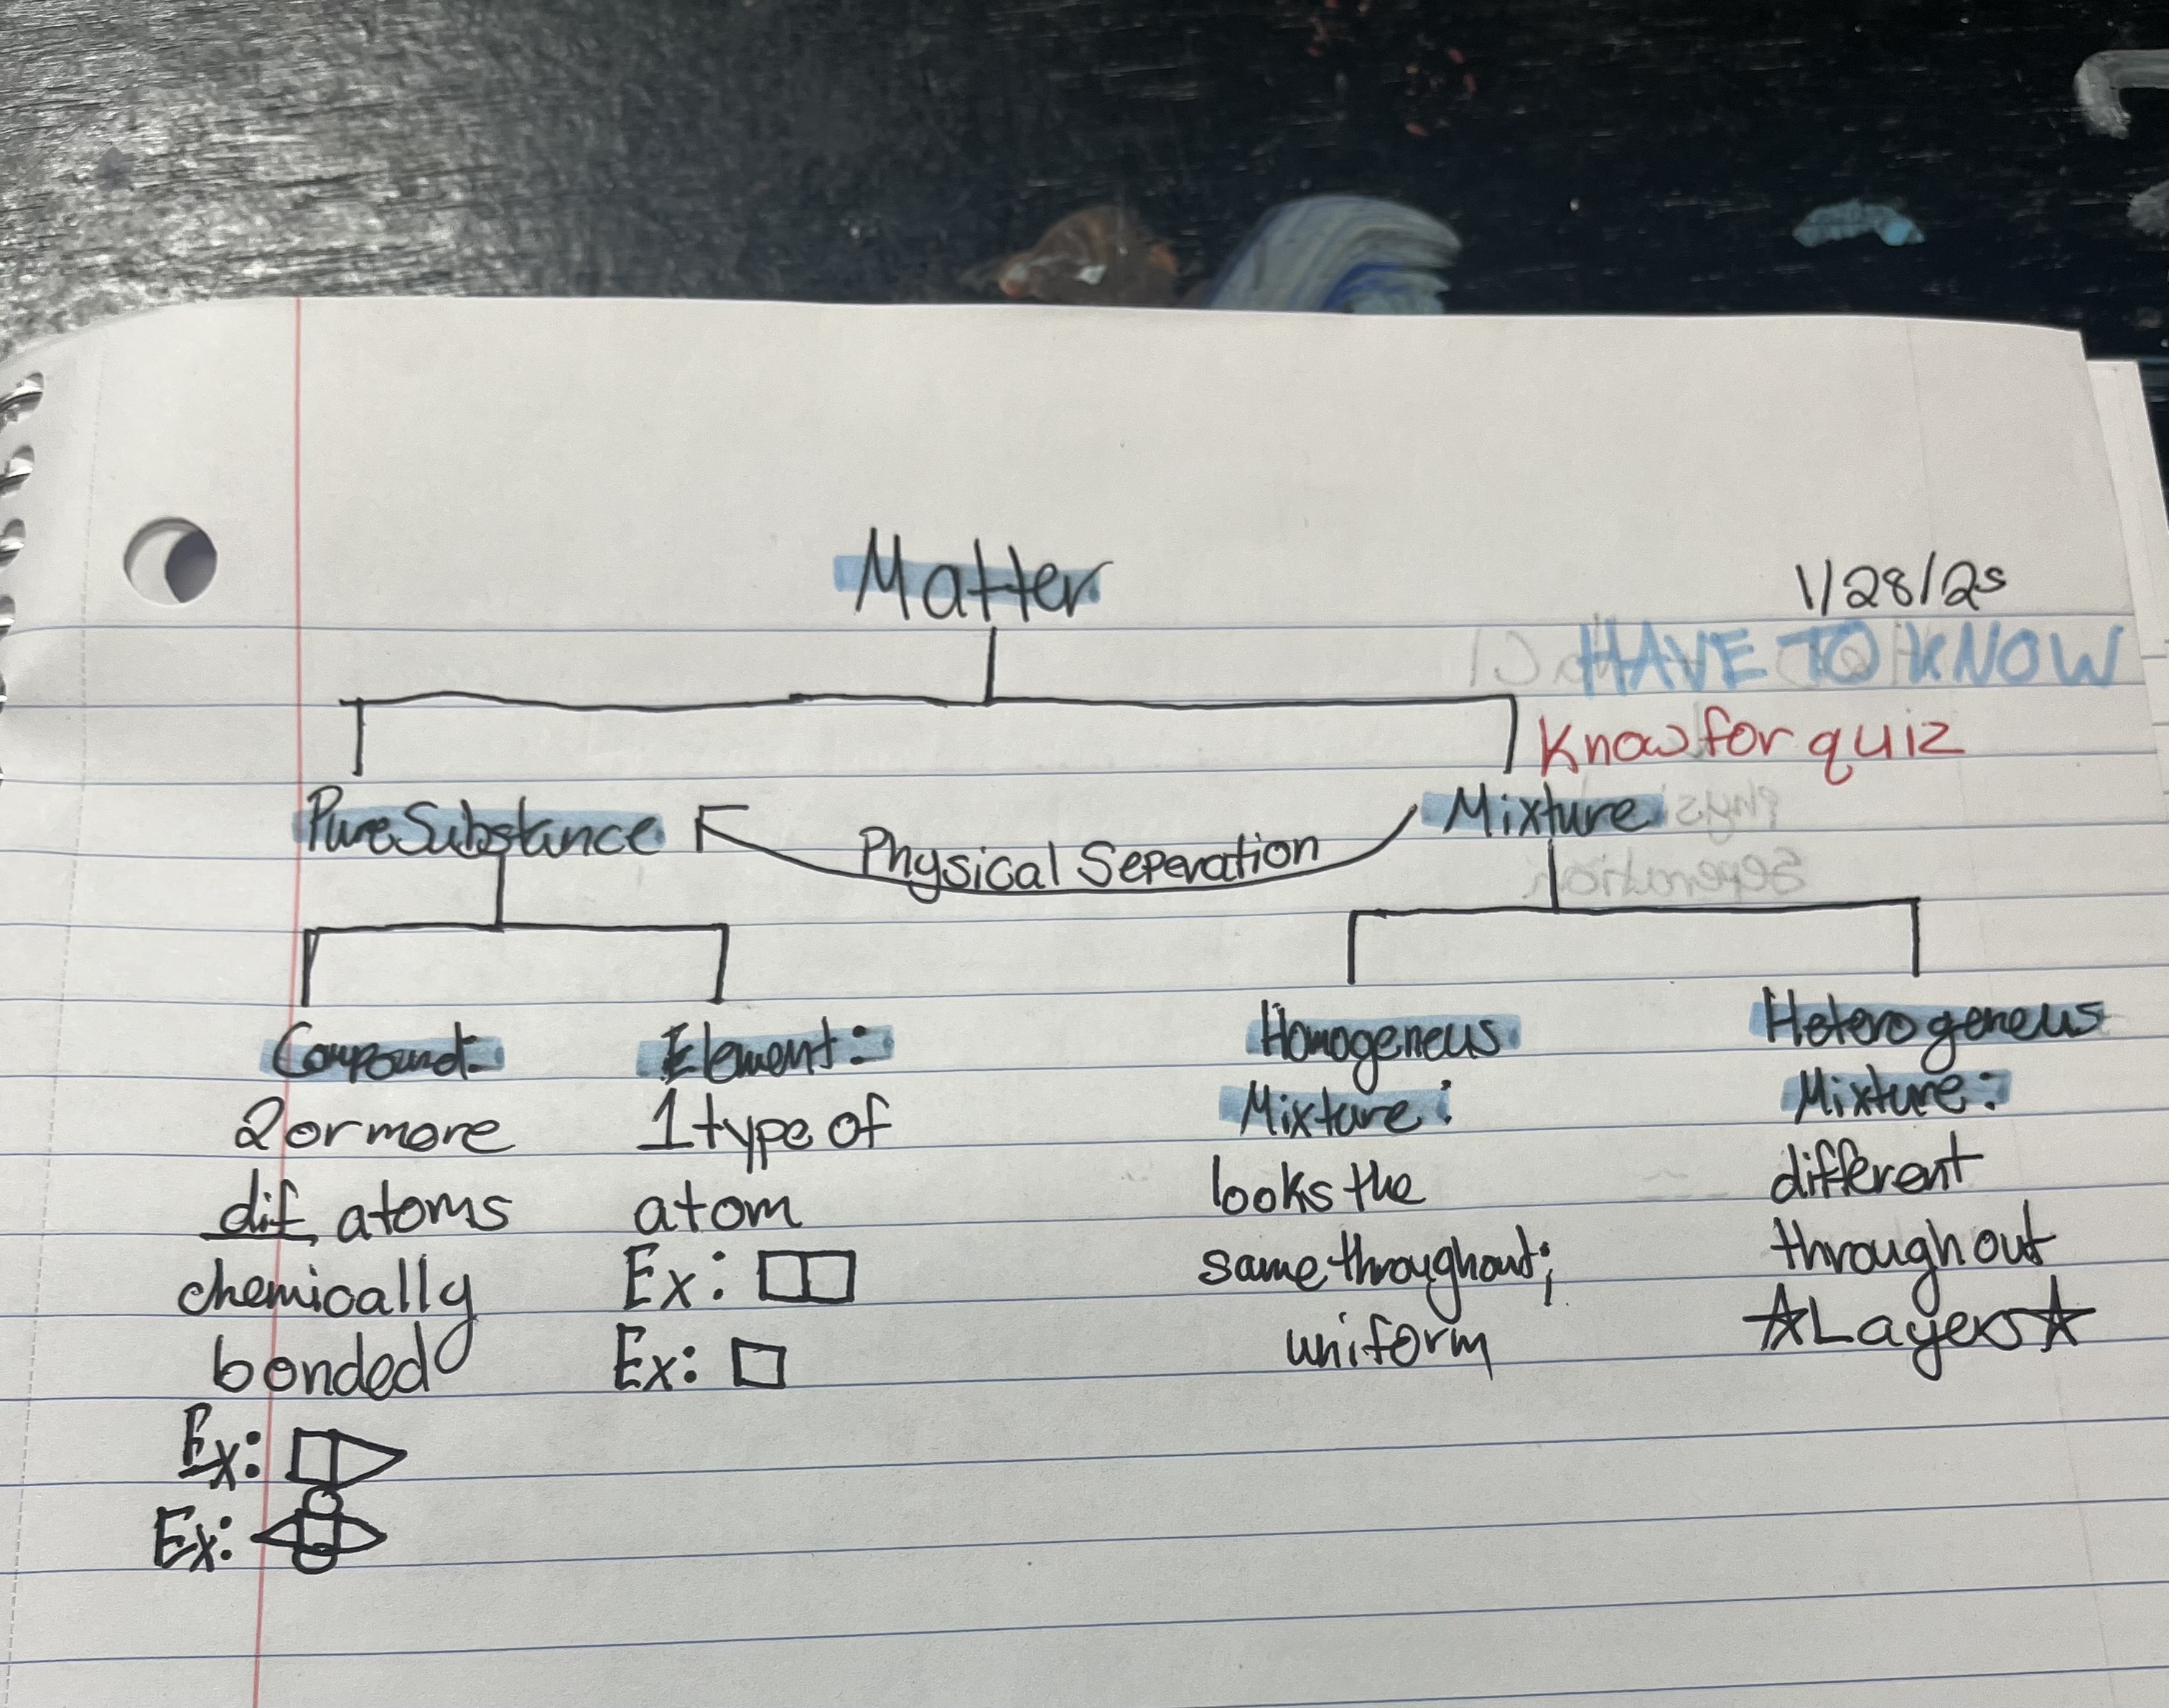 Matter
1/28/25
HAVE TO KNOW
Know for quiz
Pure Substance
Physical Seperation
Mixture
Compound:
2 or more
dif atoms
chemically
bonded
Ex:
Ex:
Element:
1 type of
atom
Ex:
Ex:
Homogeneus
Mixture:
looks the
same throughout;
uniform
Heterogeneus
Mixture:
different
throughout
☆Layers☆